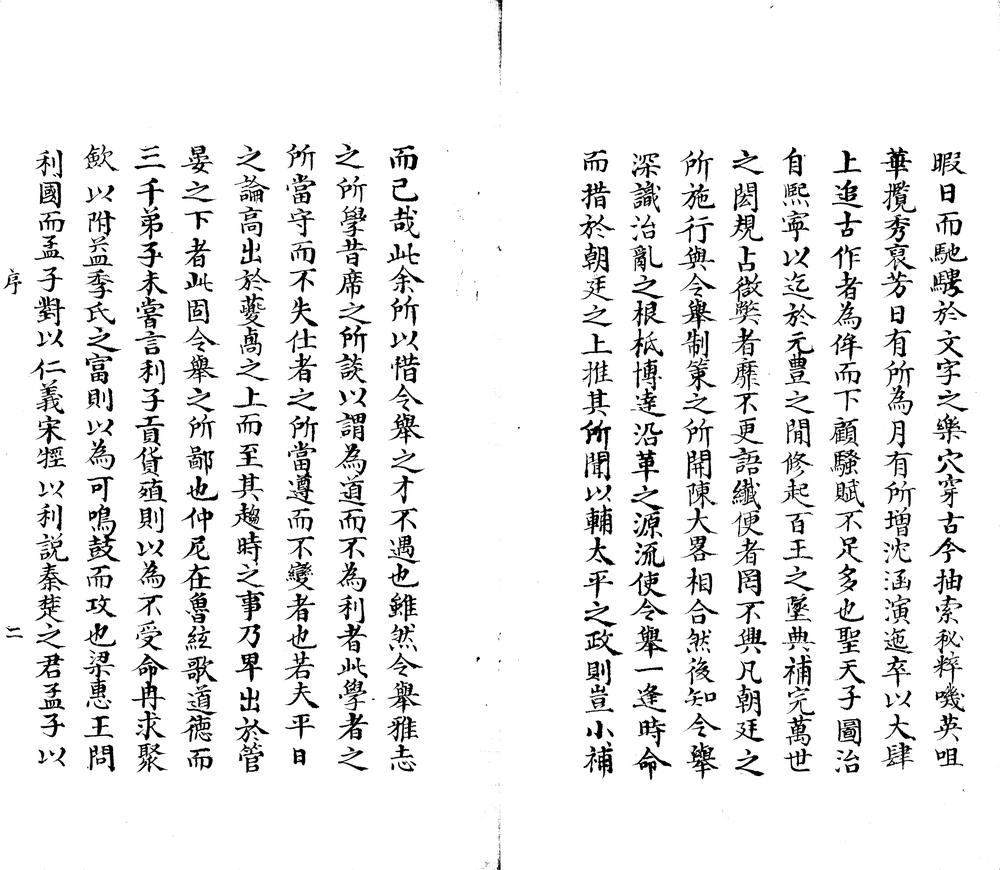 暇日而馳騁於文字之樂穴穿古今抽索秘粹嘰英咀
華攬秀裒芳日有所為月有所增沈涵演迤卒以大肆
上追古作者為侔而下顧騷賦不足多也聖天子圖治
自熙寧以迄於元豊之間修起百王之墜典補完萬世
之閎規占微獘者靡不更語纖便者罔不興凡朝廷之
所施行與令舉制策之所開陳大畧相合然後知令舉
深識治亂之根柢博達沿革之源流使令舉一逢時命
而措於朝廷之上推其所聞以輔太平之政則豈小補
而已哉此余所以惜令舉之才不遇也雖然令舉雅志
之所學昔席之所談以謂為道而不為利者此學者之
所當守而不失仕者之所當遵而不變者也若夫平日
之論高出於夔卨之上而至其趨時之事乃卑出於管
晏之下者此固令舉之所鄙也仲尼在魯絃歌道德而
三千弟子未嘗言利子貢貨殖則以為不受命冉求聚
歛以附益季氏之富則以為可鳴鼓而攻也梁惠王問
利國而孟子對以仁義宋牼以利説秦楚之君孟子以
序
二